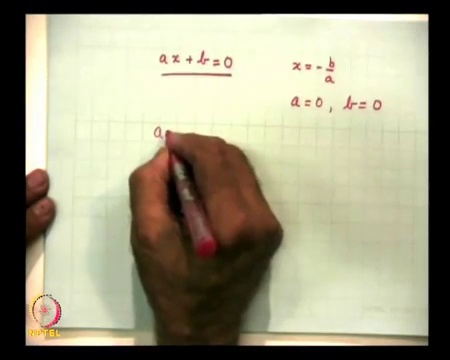 ax + b = 0
x = - b/a
a = 0, b = 0
a
NPTEL